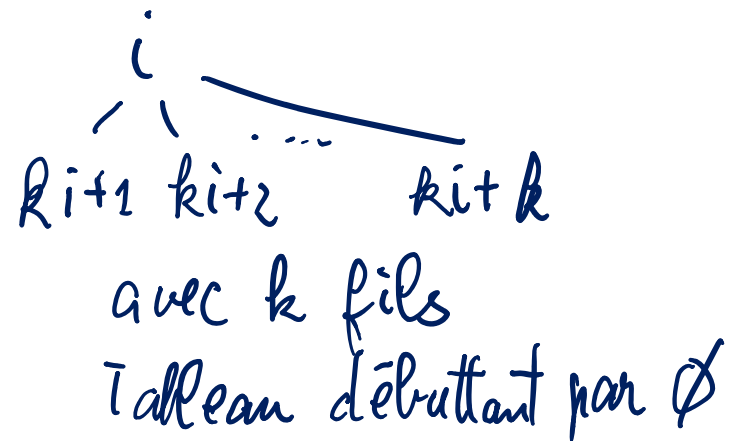 i
ki+1 ki+2 .... ki+k
avec k fils
Tableau débuttant par Ø